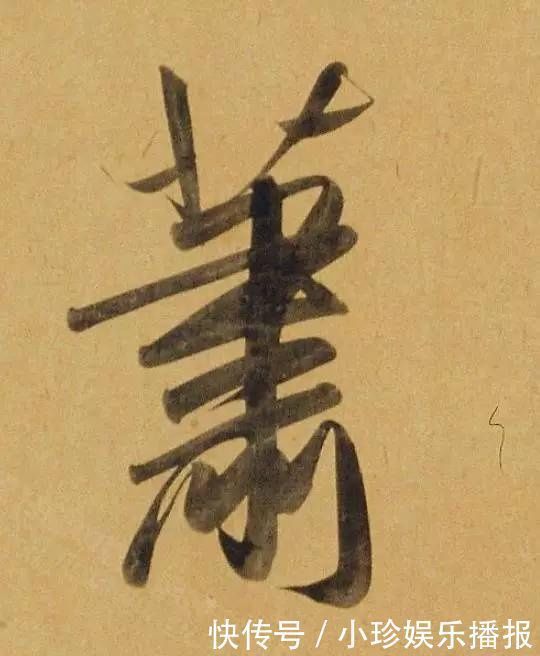 蕭
快传号 / 小珍娱乐播报